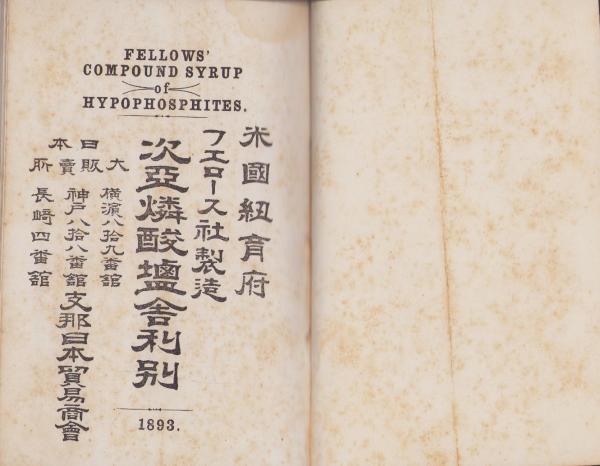 FELLOWS'
COMPOUND SYRUP
of
HYPOPHOSPHITES.
米國紐育府
フエロース社製造
次亞燐酸塩舎利別
大日本
販賣所
横濱八拾九番舘
神戸八拾八番舘
長崎四番舘
支那日本貿易商會
1893.